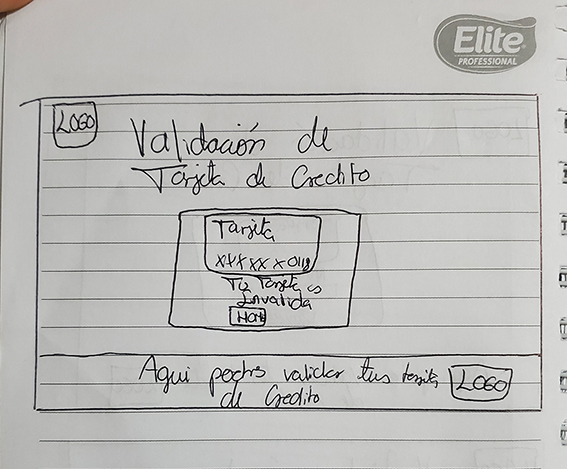 Elite
PROFESSIONAL
LOGO
Validación de
Tarjeta de Credito
Tarjeta
XXXXXX0118
Tu Tarjeta es
Invalida
Aqui podras validar tus tarjetas
de Credito
LOGO